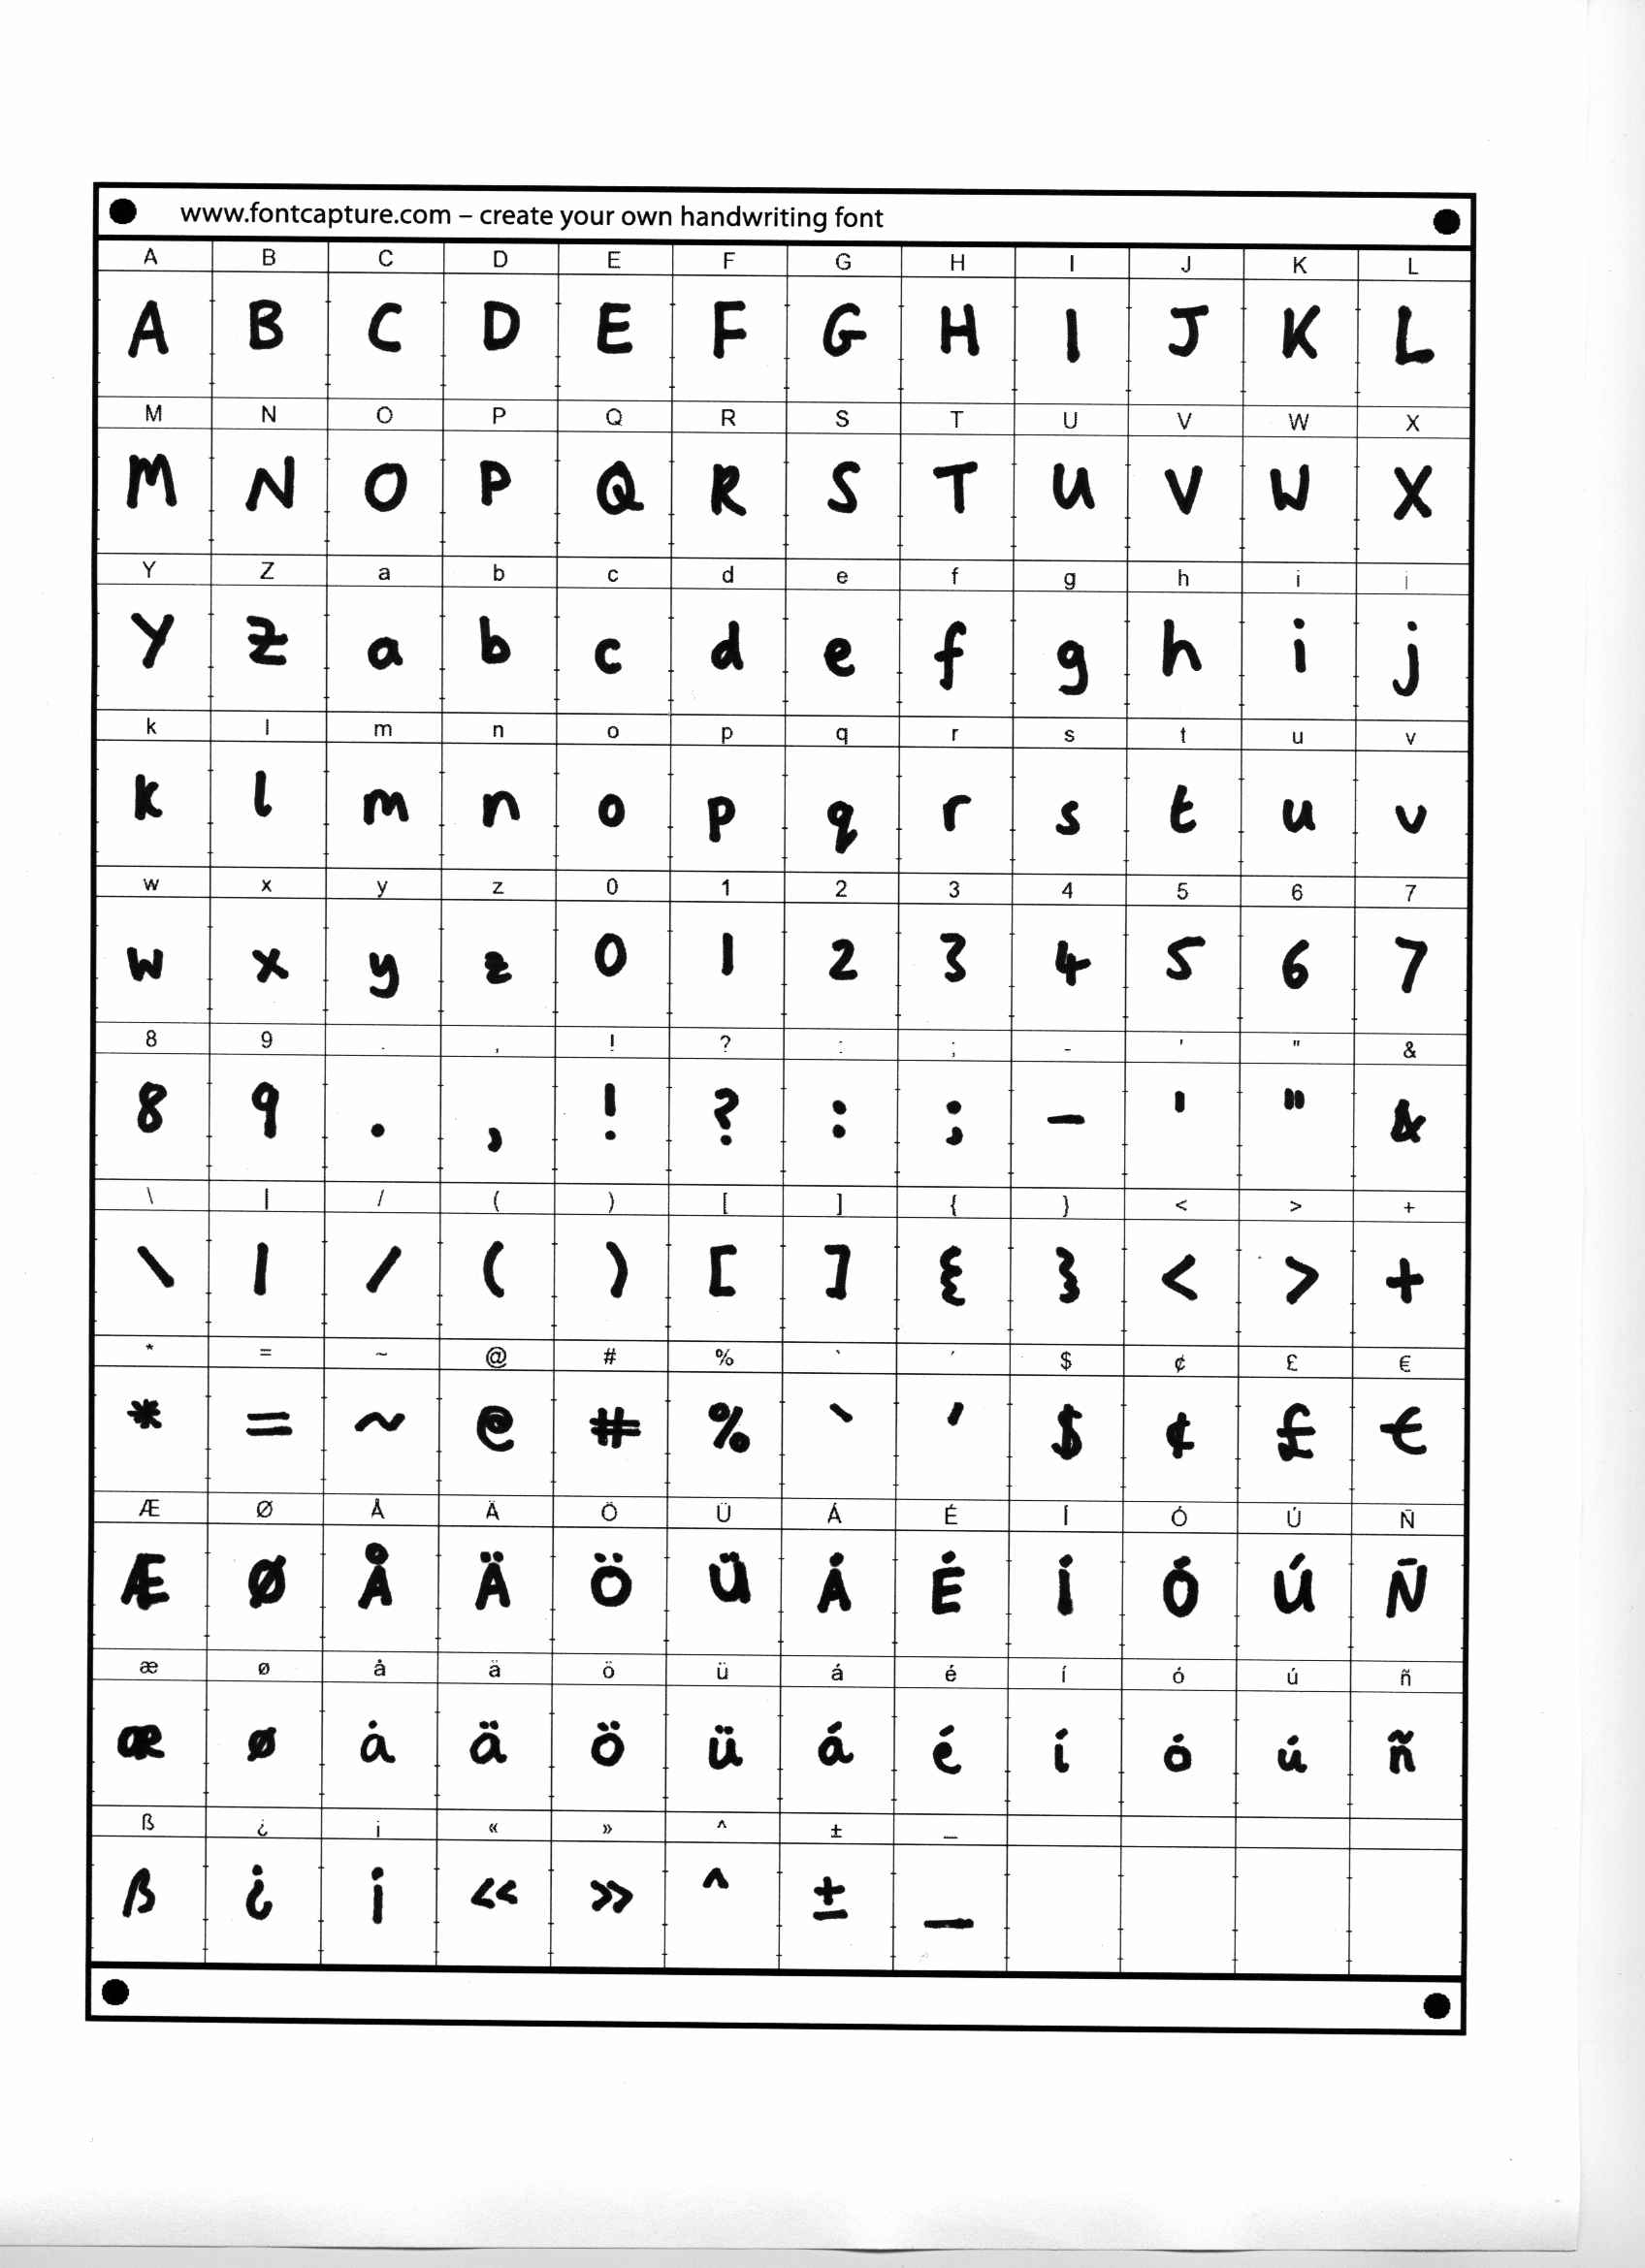 www.fontcapture.com – create your own handwriting font
A B C D E F G H I J K L
A B C D E F G H I J K L
M N O P Q R S T U V W X
M N O P Q R S T U V W X
Y Z a b c d e f g h i j
Y Z a b c d e f g h i j
k l m n o p q r s t u v
k l m n o p q r s t u v
w x y z 0 1 2 3 4 5 6 7
w x y z 0 1 2 3 4 5 6 7
8 9 . , ! ? : ; - ' " &
8 9 . , ! ? : ; - ' " &
\ | / ( ) [ ] { } < > +
\ | / ( ) [ ] { } < > +
* = ~ @ # % ` ´ $ ¢ £ €
* = ~ @ # % ` ´ $ ¢ £ €
Æ Ø Å Ä Ö Ü Á É Í Ó Ú Ñ
Æ Ø Å Ä Ö Ü Á É Í Ó Ú Ñ
æ ø å ä ö ü á é í ó ú ñ
æ ø å ä ö ü á é í ó ú ñ
ß ¿ ¡ « » ^ ± _
ß ¿ ¡ « » ^ ± _